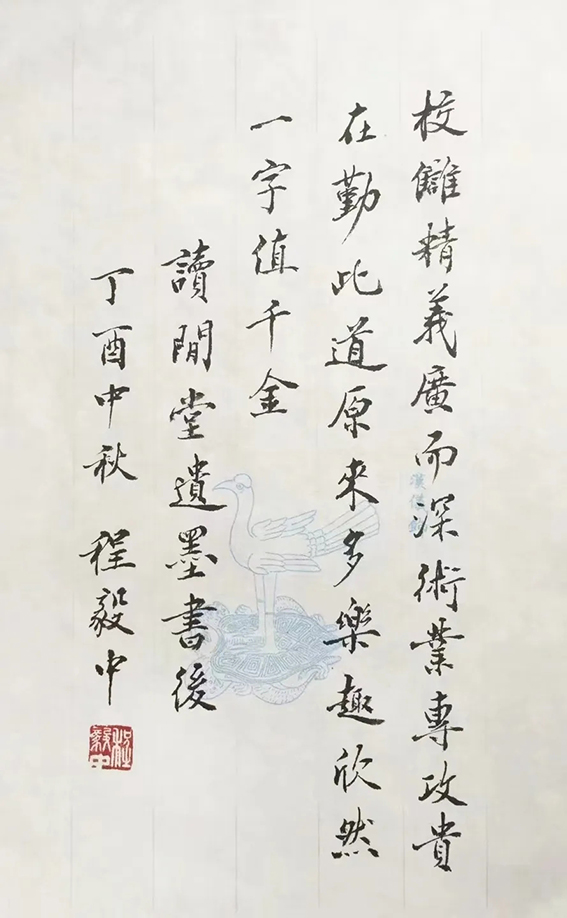 校讎精義廣而深術業專攻貴
在勤此道原來多樂趣欣然
一字值千金
讀閒堂遺墨書後
丁酉中秋 程毅中
程毅中